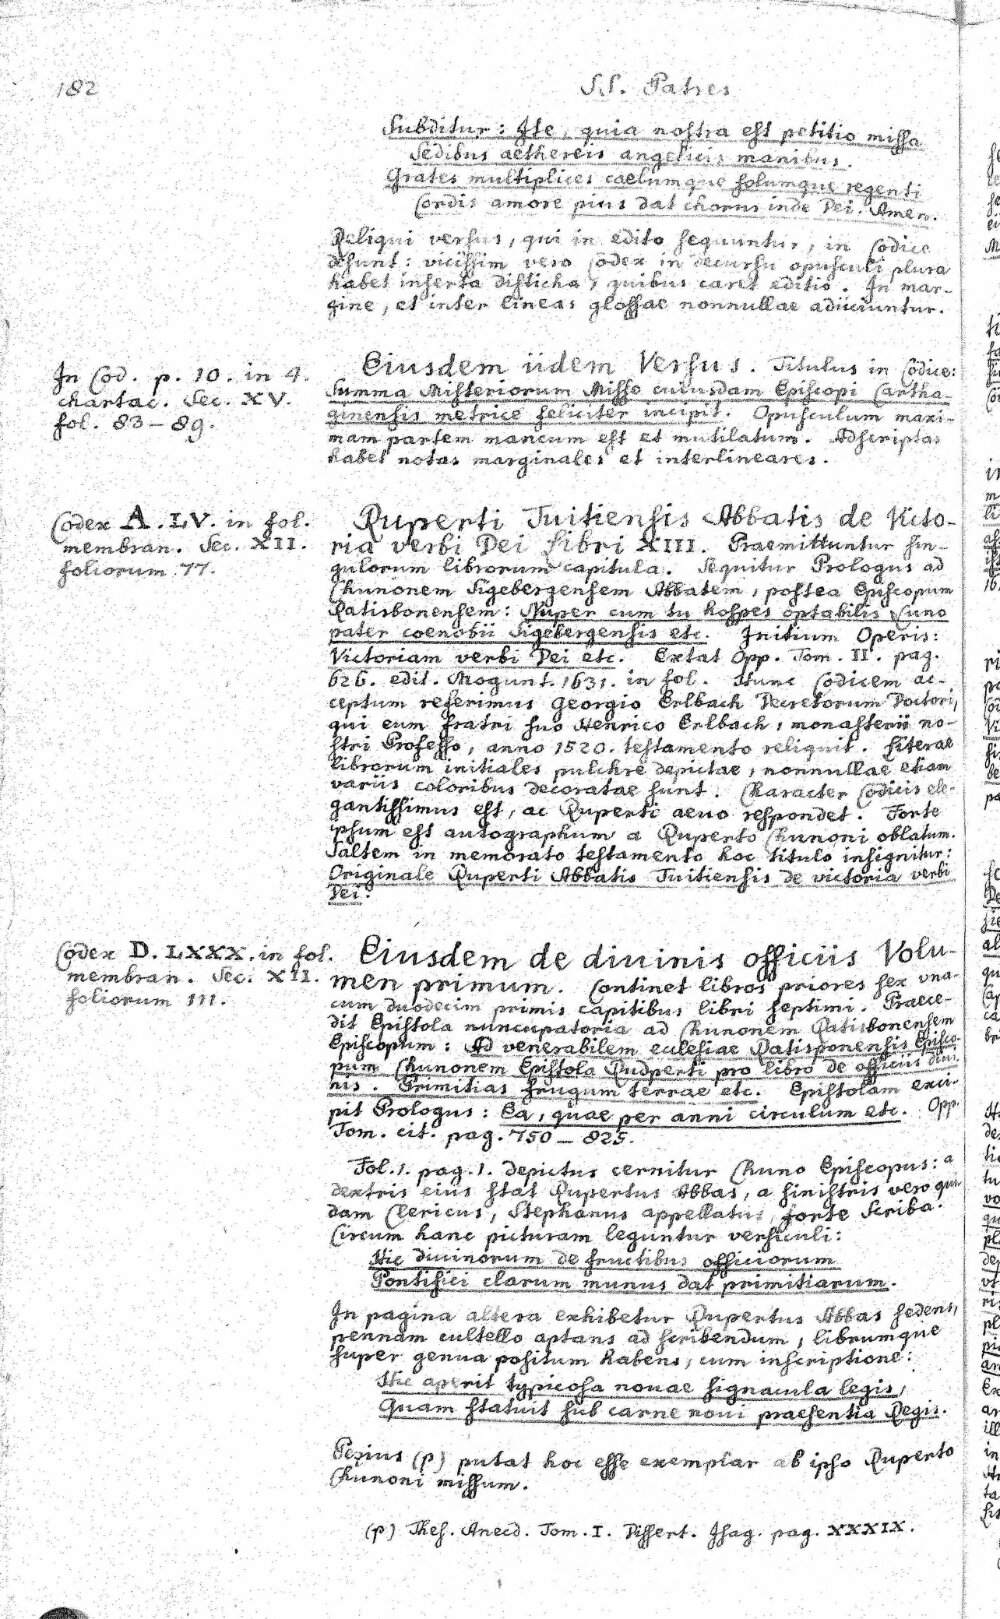 182
S.S. Patres
Subditur: Ite, quia nostra est petitio missa
Sedibus aethereis angelicis manibus.
Grates multiplices caelumque solumque regenti
Cordis amore pius dat chorus inde Dei. Amen.
Reliqui versus, qui in edito sequuntur, in Codice
desunt: vicissim vero Codex in decursu opusculi plura
habet inserta disticha, quibus caret editio. In mar-
gine, et inter lineas glossae nonnullae adiiciuntur.
In Cod. p. 10. in 4.
chartac. Sec. XV.
fol. 83-89.
Eiusdem iidem Versus. Titulus in Codice:
Summa Misteriorum Misse cuiusdam Episcopi Cartha-
ginensis metrice feliciter incipit. Opusculum maxi-
mam partem mancum est et mutilatum. Adscriptas
habet notas marginales et interlineares.
Codex A. LV. in fol.
membran. Sec. XII.
foliorum 77.
Ruperti Tuitiensis Abbatis de Victo-
ria verbi Dei Libri XIII. Praemittuntur sin-
gulorum librorum capitula. Sequitur Prologus ad
Chunonem Sigebergensem Abbatem, postea Episcopum
Ratisbonensem: Nuper cum tu hospes optabilis Cuno
pater coenobii Sigebergensis etc. Initium Operis:
Victoriam verbi Dei etc. Extat Opp. Tom. II. pag.
626. edit. Mogunt. 1631. in fol. Hunc Codicem ac-
ceptum referimus Georgio Erlbach Decretorum Doctori,
qui eum fratri suo Henrico Erlbach, monasterii no-
stri Professo, anno 1520. testamento reliquit. Literae
librorum initiales pulchre depictae, nonnullae etiam
variis coloribus decoratae sunt. Character Codicis ele-
gantissimus est, ac Ruperti aevo respondet. Forte
ipsum est autographum a Ruperto Chunoni oblatum.
Saltem in memorato testamento hoc titulo insignitur:
Originale Ruperti Abbatis Tuitiensis de victoria verbi
Dei.
Codex D. LXXX. in fol.
membran. Sec. XII.
foliorum 111.
Eiusdem de diuinis officiis Volu-
men primum. Continet libros priores sex vna
cum duodecim primis capitibus libri septimi. Praece-
dit Epistola nuncupatoria ad Chunonem Ratisbonensem
Episcopum: Ad venerabilem eclesiae Ratisponensis Episco-
pum Chunonem Epistola Rudperti pro libro de officiis diui-
nis. Primitias frugum terrae etc. Epistolam exci-
pit Prologus: Ea, quae per anni circulum etc. Opp.
Tom. cit. pag. 750-825.
Fol. 1. pag. 1. depictus cernitur Chuno Episcopus: a
dextris eius stat Rupertus Abbas, a sinistris vero qui-
dam Clericus, Stephanus appellatus, forte Scriba.
Circum hanc picturam leguntur versiculi:
Hic diuinorum de fructibus officiorum
Pontifici clarum munus dat primitiarum.
In pagina altera exhibetur Rupertus Abbas sedens,
pennam cultello aptans ad scribendum, librumque
super genua positum habens, cum inscriptione:
Hic aperit typicosa nouae signacula legis,
Quam statuit sub carne noui praesentia Regis.
Pezius (p) putat hoc esse exemplar ab ipso Ruperto
Chunoni missum.
(p) Thes. Anecd. Tom. I. Dissert. Isag. pag. XXXIX.